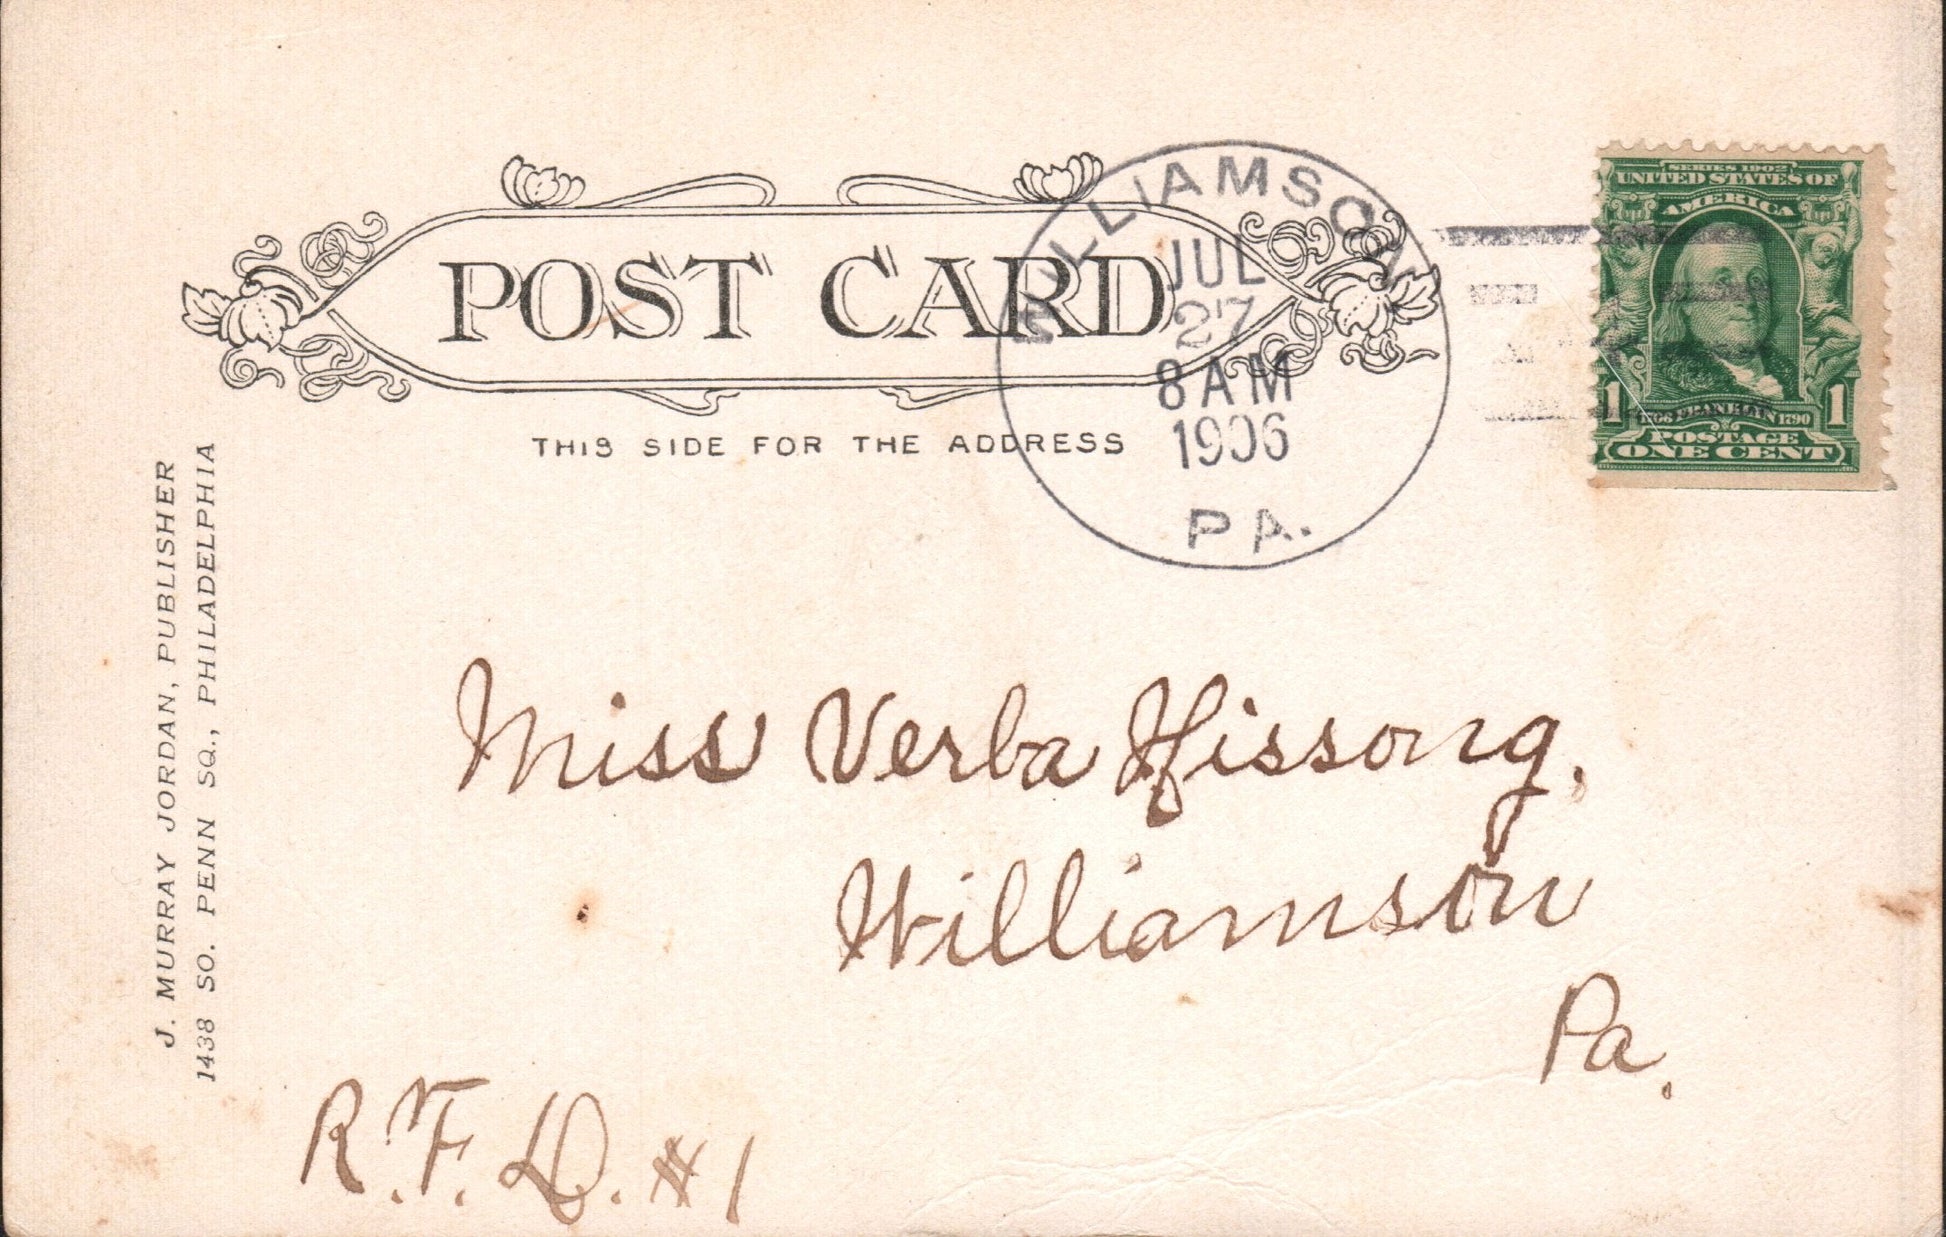 POST CARD
THIS SIDE FOR THE ADDRESS
WILLIAMSON
JUL
27
8 AM
1906
PA.
SERIES 1902
UNITED STATES OF
AMERICA
1 1766 FRANKLIN 1790 1
POSTAGE
ONE CENT
J. MURRAY JORDAN, PUBLISHER
1438 SO. PENN SQ., PHILADELPHIA
Miss Verba Hissong.
Williamson
Pa.
R.F.D. #1